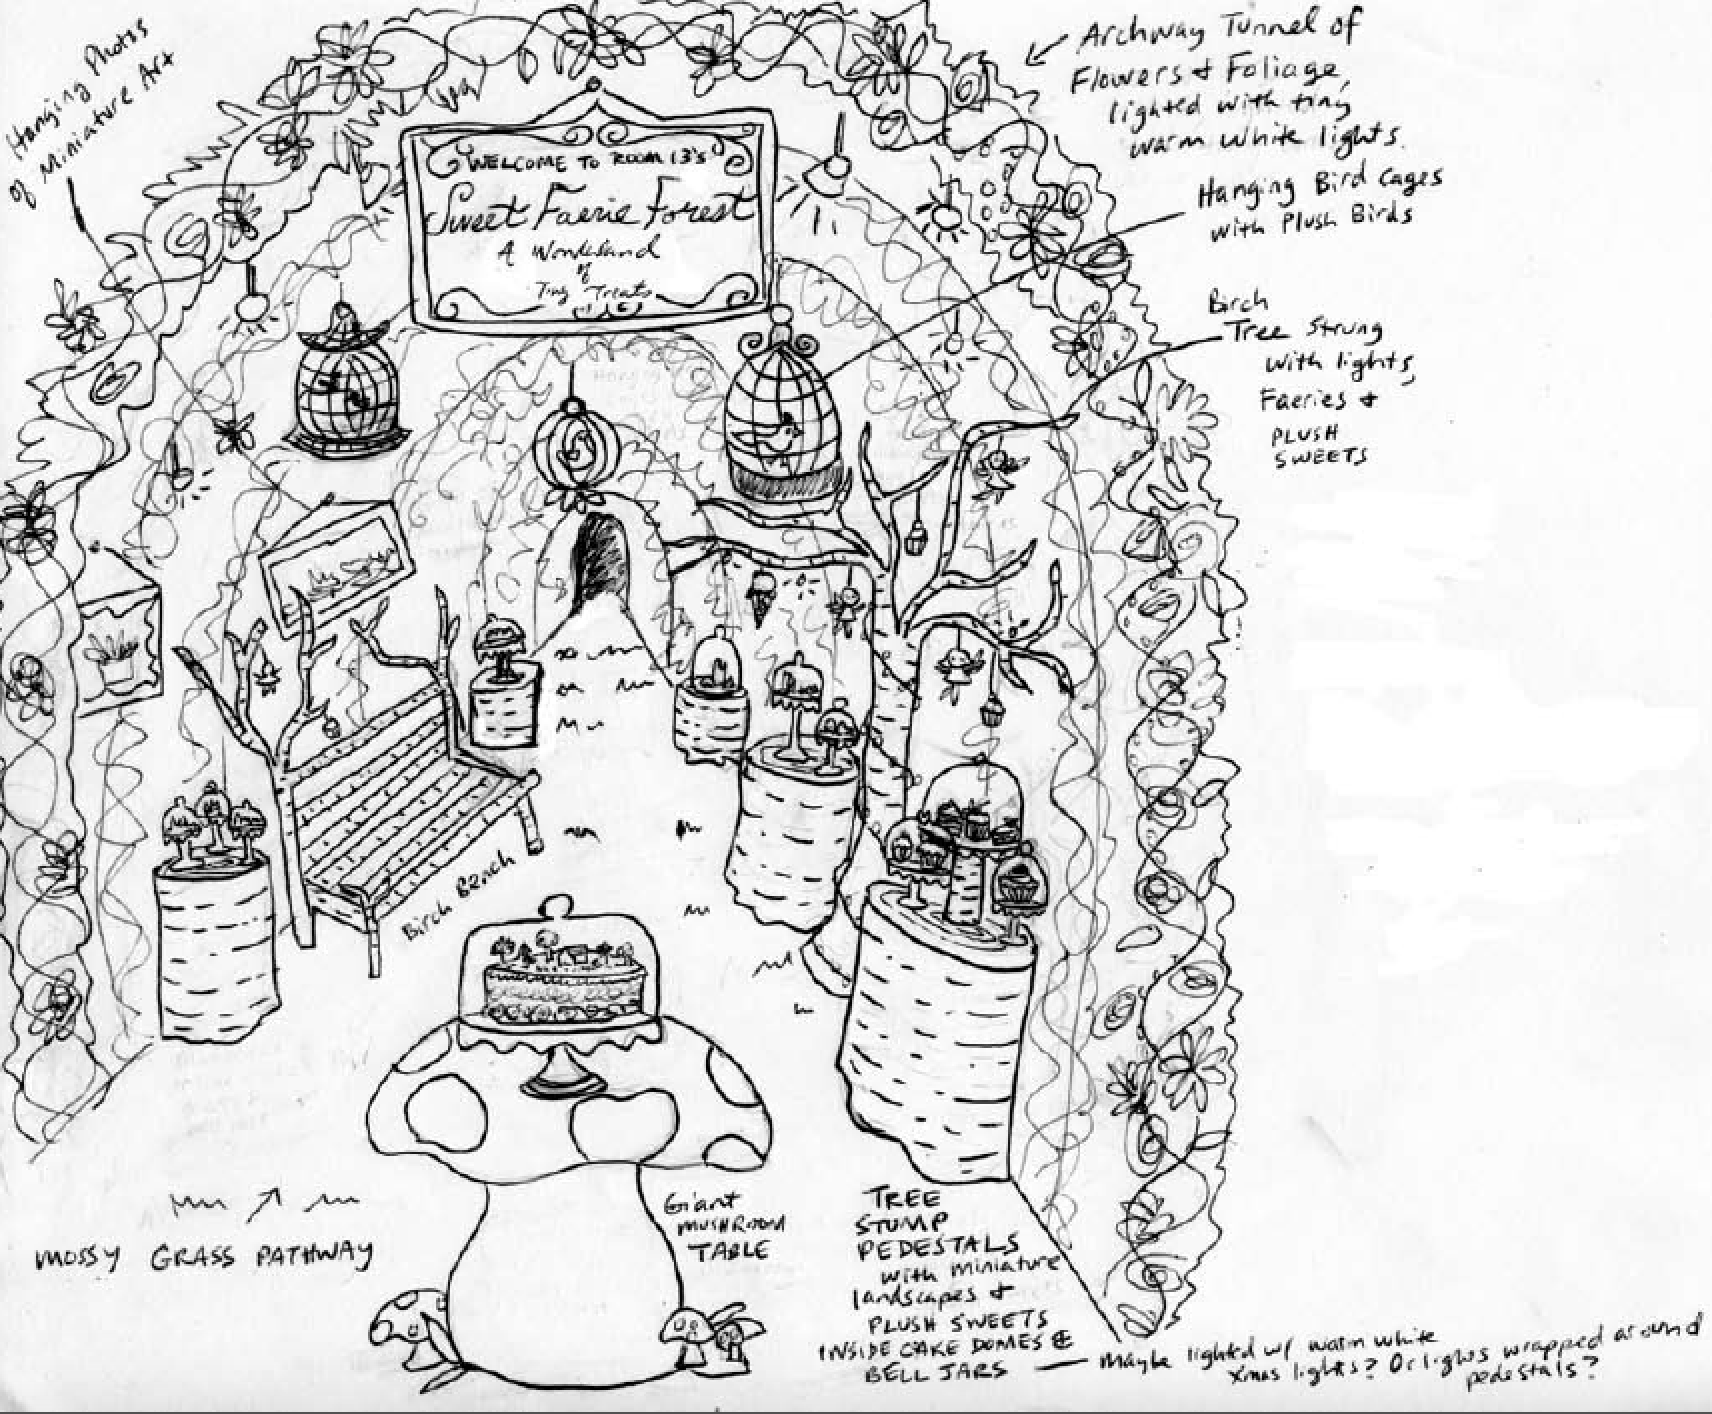 Hanging Photos
of Miniature Art
Archway Tunnel of
Flowers & Foliage,
lighted with tiny
warm white lights.
WELCOME TO ROOM 13'S
Sweet Faerie Forest
A Wonderland
of
Tiny Treats
Hanging Bird Cages
with Plush Birds
Birch
Tree Strung
with lights,
Faeries &
PLUSH
SWEETS
Birch Bench
MOSSY GRASS PATHWAY
Giant
MUSHROOM
TABLE
TREE
STUMP
PEDESTALS
with miniature
landscapes &
PLUSH SWEETS
INSIDE CAKE DOMES &
BELL JARS
Maybe lighted w/ warm white
Xmas lights? Or lights wrapped around
pedestals?